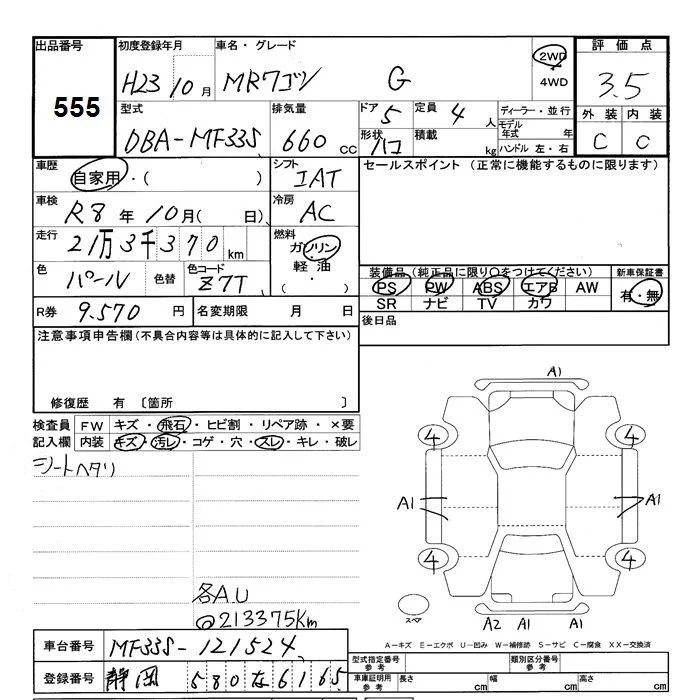 出品番号 初度登録年月 車名・グレード 2WD 評価点
555 H23 10月 MRワゴン G 4WD 3.5
型式 排気量 ドア 5 定員 4人 ディーラー・並行 外装 内装
DBA-MF33S 660cc 形状 ハコ 積載 kg モデル年式 年 C C
ハンドル 左・右
車歴 自家用・( ) シフト IAT セールスポイント (正常に機能するものに限ります)
車検 R8年 10月( 日) 冷房 AC
走行 21万3千370km 燃料 ガソリン・軽油
装備品 (純正品に限り○をつけてください) 新車保証書
色 パール 色替 色コード Z7T PS PW ABS エアB AW 有・無
SR ナビ TV カワ
R券 9.570円 名変期限 月 日 後日品
注意事項申告欄(不具合内容等は具体的に記入して下さい)
修復歴 有 〔箇所 〕
検査員 FW キズ・飛石・ヒビ割・リペア跡・×要
記入欄 内装 キズ・汚レ・コゲ・穴・スレ・キレ・破レ
シートヘタリ
各A.U
@213375Km
A1
4 4
A1 A1
4 4
スペア A2 A1 A1
A-キズ E-エクボ U-凹み W-補修跡 S-サビ C-腐食 XX-交換済
車台番号 MF33S-121524
登録番号 静岡 580 な 6165
型式指定番号 参考 類別区分番号 参考
車庫証明用 参考 長さ cm 幅 cm 高さ cm